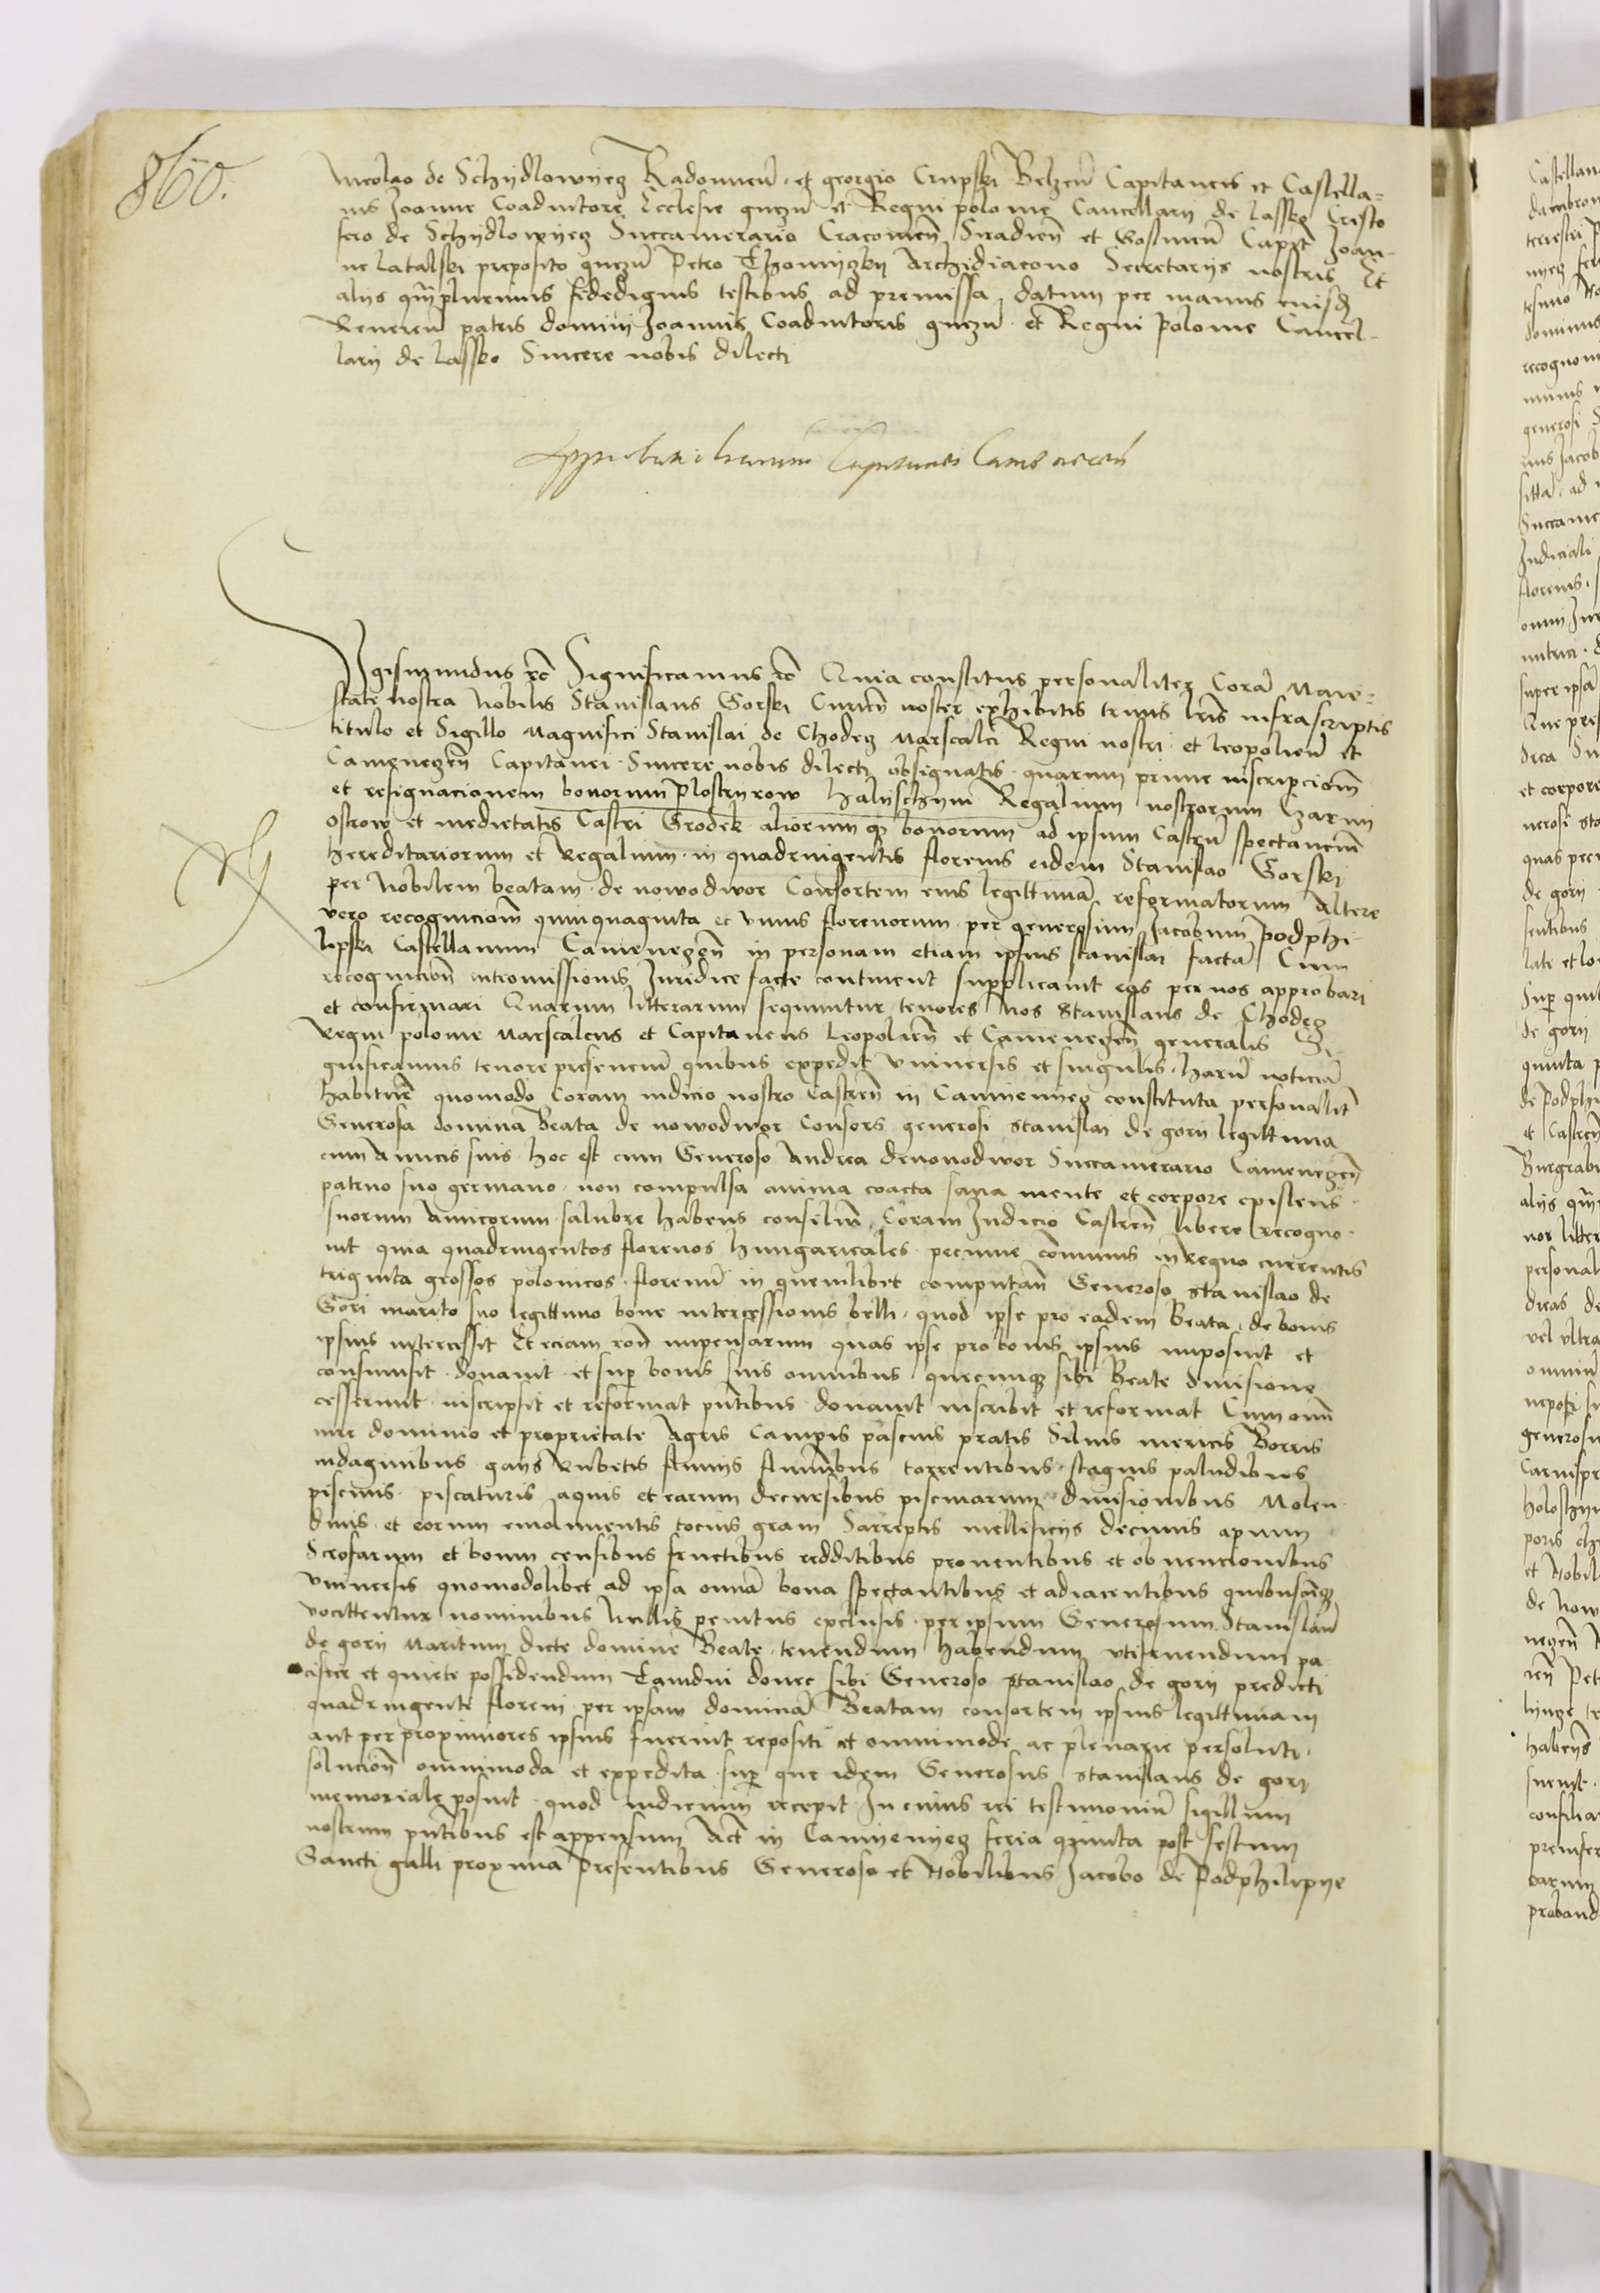 860.
Nicolao de Schydlowyecz Radomien̄ et georgio Crupski Belzen̄ Capitaneis et Castella=
nis Joanne Coadiutore Ecclesie gnezn̄ et Regni polonie Cancellarij de Lassko Cristo
fero de Schydlowyecz Succamerario Cracovien̄ Siradien̄ et Gostinen̄ Capit̄ Joan-
ne latalski preposito gnezn̄ Petro Thomyczky Archidiacono Secretariis nostris Et
aliis q̄mplurimis fidedignis testibus ad premissa datum per manus eiusd̄
Reveren̄ patris domini Joannis Coadiutoris gnezn̄ et Regni polonie Cancel-
larij de lassko Sincere nobis dilecti
Igismundus ꝛc̄ Significamus ꝛc̄ Quia constitus personaliter Corā Maie=
state nostra Nobilis Stanislaus Gorski Curien̄ noster exhibitis trinis lr̄is infrascriptis
titulo et Sigillo Magnifici Stanislai de Chodecz Marscalci Regni nostri et leopolien̄ et
Camenezen̄ Capitanei Sincere nobis dilecti obsignatis quarum prime inscripcion̄
et resignacionem bonorum plostyrow halyschyni Regalium nostrorum Czarni
ostrow et medietatis Castri Grodek aliorumqꝫ bonorum ad ipsum Castrū spectancium̄
hereditariorum et Regalium in quadringentis florenis eidem Stanislao Gorski
per Nobilem beatam de nowodwor Consortem eius legittimā reformatorum Altere
vero recognicion̄ quinquaginta et unius florenorum per generosum Jacobum podphi-
lipski Castellanum Camenezen̄ in personam etiam ipsius stanislai factā Cum
recognicion̄ intromissionis Juridice facte continent supplicavit eas per nos approbari
et confirmari Quarum litterarum sequuntur tenores Nos Stanislaus de Chodecz
Regni polonie Marscalcus et Capitaneus Leopolien̄ et Camenezen̄ generalis Si-
gnificamus tenore presencium̄ quibus expedit universis et singulis harū noticiā
habitur̄ quomodo Coram iudicio nostro Castren̄ in Camyenyecz constituta personalit̄
Generosa domina Beata de nowodwor Consors generosi Stanislai de gory legittima
cum Amicis suis hoc est cum Generoso Andrea denovodwor Succamerario Camenezen̄
patruo suo germano non compulsa anima coacta sana mente et corpore existens
suorum Amicorum salubre habens consiliū Coram Judicio Castren̄ libere recogno-
vit quia quadringentos florenos hungaricales pecunie cōmunis in Regno currentis
triginta grossos polonicos florenū in quemlibet computan̄ Generoso Stanislao de
Gori marito suo legittimo bone intercessionis belli quod ipse pro eadem Beata de bonis
ipsius intercessit Et eciam ron̄ impensarum quas ipse pro bonis ipsius imposuit et
consumsit donavit et sup̄ bonis suis omnibus quecunqꝫ sibi Beate divisione
cesserunt inscripsit et reformat pn̄tibus donavit inscribit et reformat Cum omni
iure dominio et proprietate Agris Campis pascuis pratis Silvis mericis Borris
indaginibus gays Rubetis fluviis fluminibus torrentibus stagnis paludibus
piscinis piscaturis aquis et earum decursibus piscinarum divisionibus Molen
dinis et eorum emolimentis tocius gran̄ Sarreptis mellificiis decimis apum
Scrofarum et boum censibus fructibus redditibus proventibus et obvencionibus
Universis quomodolibet ad ipsa omnia bona spectantibus et adiacentibus quibuscūqꝫ
vocittentur nominibus Nullis penitus exclusis per ipsum Generosum Stanislaū
de gory Maritum dicte domine Beate tenendum habendum utifruendum pa
cifice et quiete possidendum Tamdiu donec sibi Generoso Stanislao de gory predicti
quadringente floreni per ipsam dominā Beatam consortem ipsius legittimam
aut per propinquiores ipsius fuerint repositi et omnimode ac plenarie persoluti
solucion̄ omnimoda et expedita sup̄ que idem Generosus stanislaus de gori
memoriale posuit quod iudicium recepit In cuius rei testimoniū sigillum
nostrum pn̄tibus est appensum Act̄ in Camyenyecz feria quinta post festum
Sancti galli proxima presentibus Generoso et Nobilibus Jacobo de Podphilipye